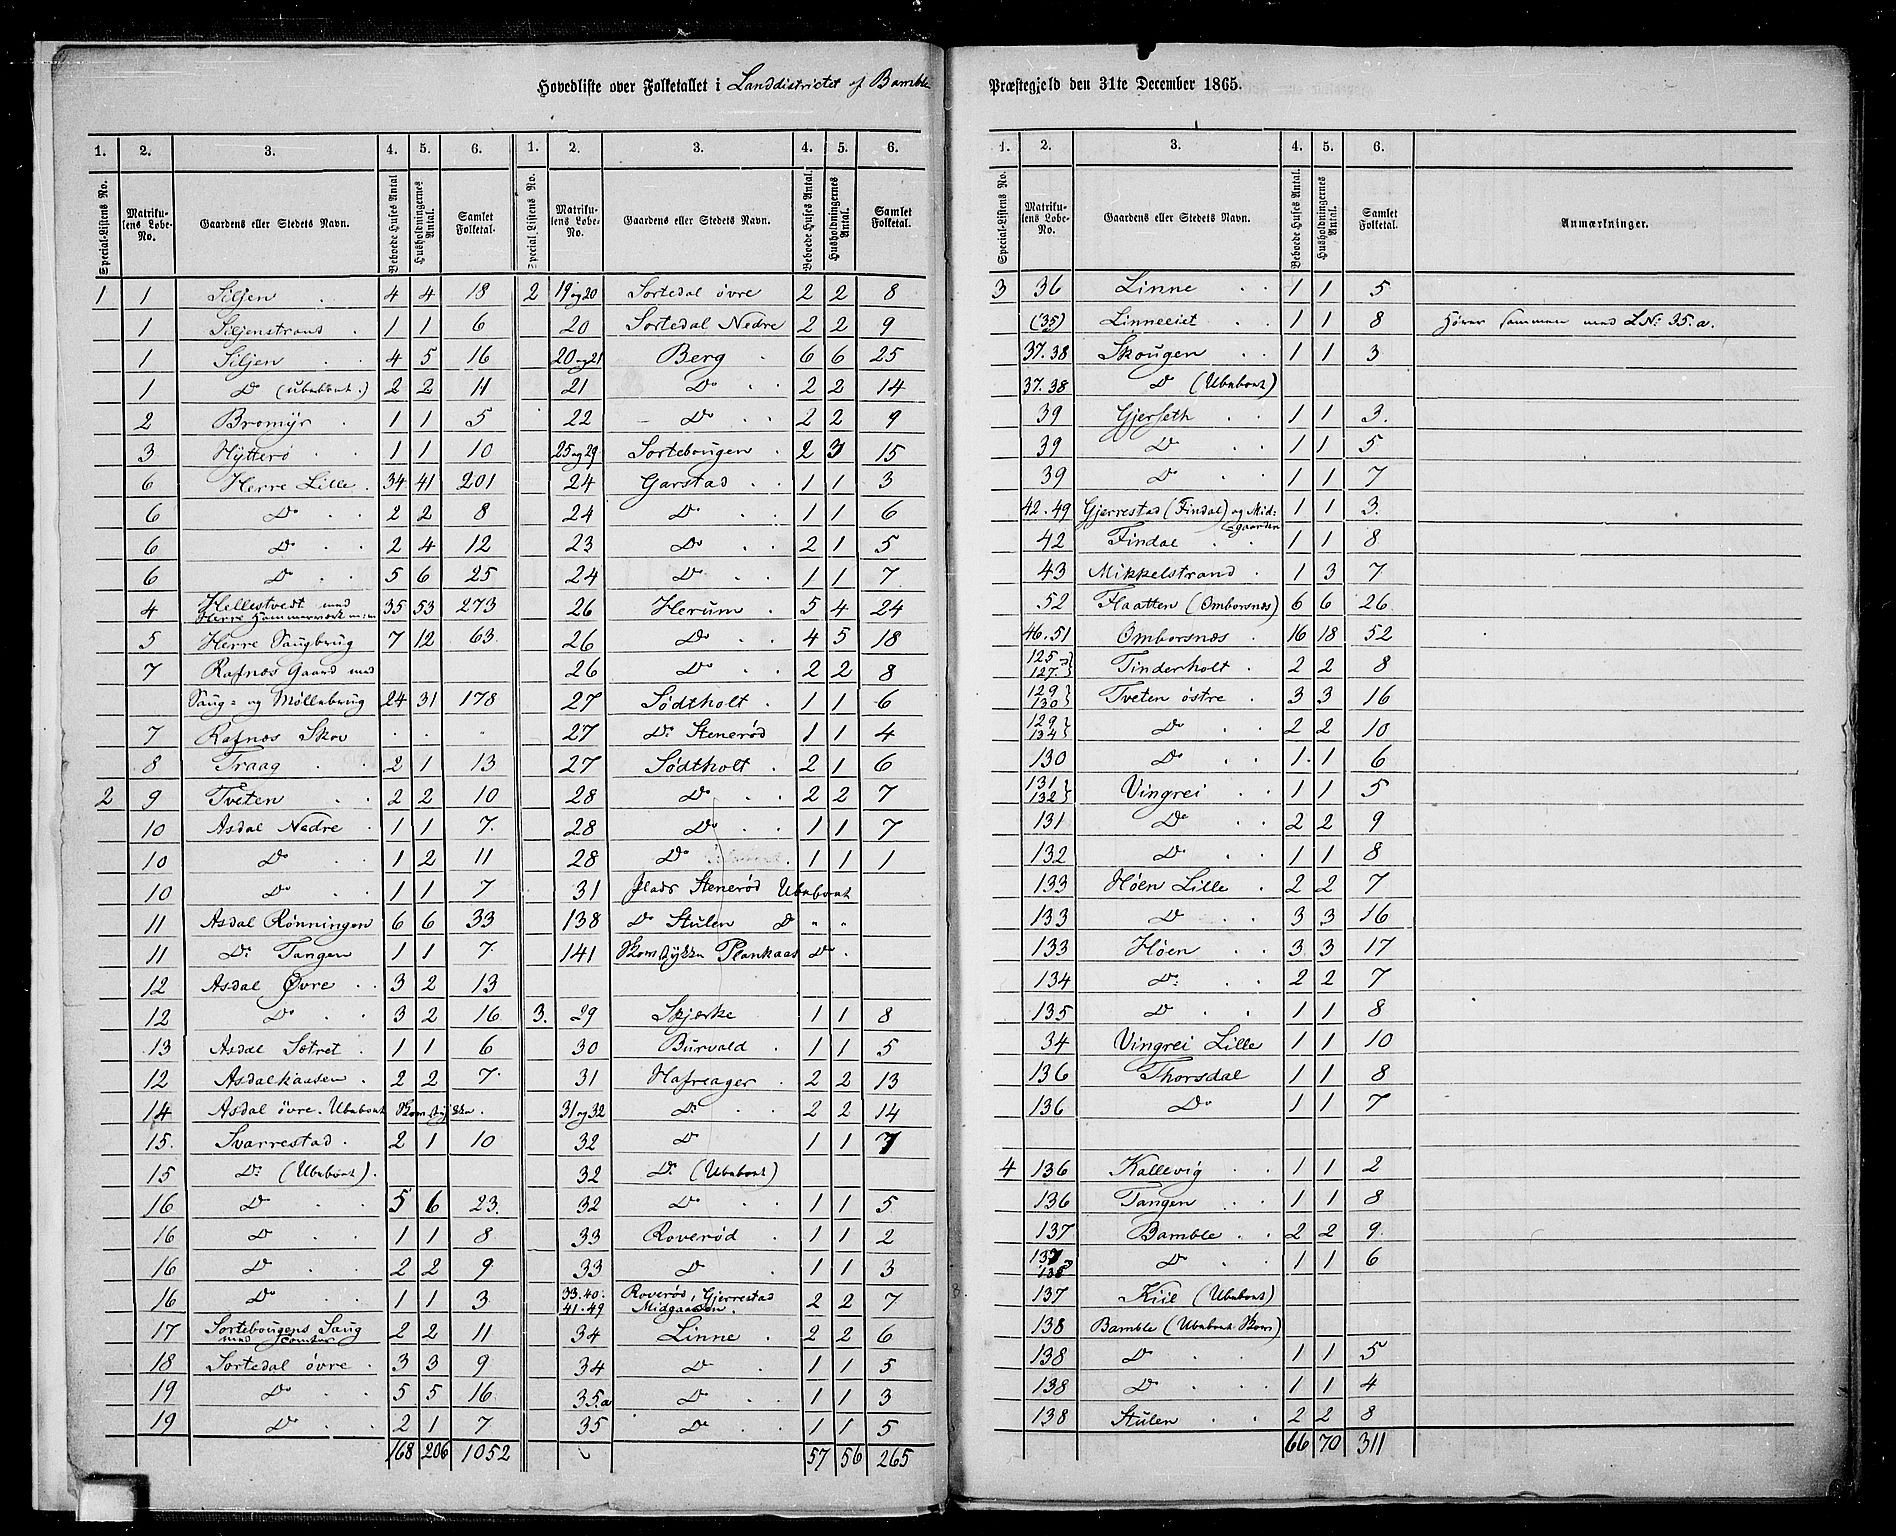 Hovedliste over Folketallet i Landdistrictet af Bamble
1. 2. 3. 4. 5. 6. 1. 2. 3. 4. 5. 6.
Special-Listens No. Matrikulens Løbe-No. Gaardens eller Stedets Navn. Beboede Huses Antal Husholdningernes Antal. Samlet Folketal. Special-Listens No. Matrikulens Løbe-No. Gaardens eller Stedets Navn. Beboede Huses Antal. Husholdningernes Antal. Samlet Folketal.
1 1 Siljen 4 4 18 2 19 og 20 Sortedal øvre 2 2 8
1 Siljenstrand 1 1 6 20 Sortedal Nedre 2 2 9
1 Siljen 4 5 16 20 og 21 Berg 6 6 25
1 Do (Ubebont.) 2 2 11 21 Do 2 2 14
2 Bromyr 1 1 5 22 Do 2 2 9
3 Hytterø 1 1 10 25 og 29 Sortebougen 2 3 15
6 Herre Lille 34 41 201 24 Garstad 1 1 3
6 Do 2 2 8 24 Do 1 1 6
6 Do 2 4 12 23 Do 2 1 5
6 Do 5 6 25 24 Do 1 1 7
4 Hellestvedt med Herre Hammerværk m:m 35 53 273 26 Herum 5 4 24
5 Herre Saugbrug 7 12 63 26 Do 4 5 18
7 Rafnæs Gaard med 26 Do 2 2 8
Saug- og Møllebrug 24 31 178 27 Sødtholt 1 1 6
7 Rafnæs Skov 27 Do Stenerød 1 1 4
8 Traag 2 1 13 27 Sødtholt 2 1 6
2 9 Tveten 2 2 10 28 Do 2 2 7
10 Asdal Nedre 1 1 7 28 Do 1 1 7
10 Do 1 2 11 28 Do 1 1 1
10 Do 1 1 7 31 Stenerød Ubebont
11 Asdal Rønningen 6 6 33 138 Do Stulen Do " "
11 Do Tangen 1 1 7 141 Plankaas Do
12 Asdal Øvre 3 2 13
12 Do 3 2 16 3. 29 Skjerke 1 1 8
13 Asdal Sætret 1 1 6 30 Burvald 1 1 5
12 Asdalkaasen 2 2 7 31 Hafreager 2 2 13
14 Asdal øvre. Ubebont 31 og 32 Do 2 2 14
15. Svarrestad 2 1 10 32 Do 1 1 7
15 Do (Ubebont). 32 Do (Ubebont)
16 Do 5 6 23. 32 Do 1 1 5
16 Do 1 1 8 33 Roverød 1 1 2
16 Do 2 2 9 33 Do 1 1 3
16 Do 1 1 3 33.40. 41.49 Roverød, Gjerrestad Midgaarden. 2 2 7
17 Sortebougens Saug med 2 2 11 34 Linne 2 2 6
18 Sortedal øvre 3 3 9 34 Do 1 1 5
19 Do 5 5 16 35.a Do 1 1 3
19 Do 2 1 7 35 Do 1 1 5
168 206 1052 57 56 265
Præstegjeld den 31te December 1865.
1. 2. 3. 4. 5. 6.
Special-Listens No. Matrikulens Løbe-No. Gaardens eller Stedets Navn. Beboede Huses Antal. Husholdningernes Antal. Samlet Folketal. Anmærkninger.
3 36 Linne 1 1 5
(35) Linneeiet 1 1 8 Hører sammen med LNo 35.a.
37.38 Skougen 1 1 3
37.38 Do (Ubebont)
39 Gjerseth 1 1 3.
39 Do 1 1 5
39 Do 1 1 7
42.49 Gjerrestad (Findal) og Midgaarden 1 1 3
42 Findal 1 1 8
43 Mikkelstrand 1 3 7
52 Flaatten (Omborsnæs) 6 6 26
46.51 Omborsnæs 16 18 52
125 127 Tinderholt 2 2 8
129 130 Tveten østre 3 3 16
129 134 Do 2 2 10
130 Do 1 1 6
131 132 Vingrei 1 1 5
131 Do 2 2 9
132 Do 1 1 8
133 Høen Lille 2 2 7
133 Do 3 3 16
133 Høen 3 3 17
134 Do 2 2 7
135 Do 1 1 8
34 Vingrei Lille 1 1 10
136 Thorsdal 1 1 8
136 Do 1 1 7
4 136 Kallevig 1 1 2
136 Tangen 1 1 8
137 Bamble 2 2 9
137 138 Do 1 1 6
137 Kiil (Ubebont)
138 Bamble (Ubebont)
138 Do 1 1 5
138 Do 1 1 4
138 Stulen 2 2 8
66 70 311